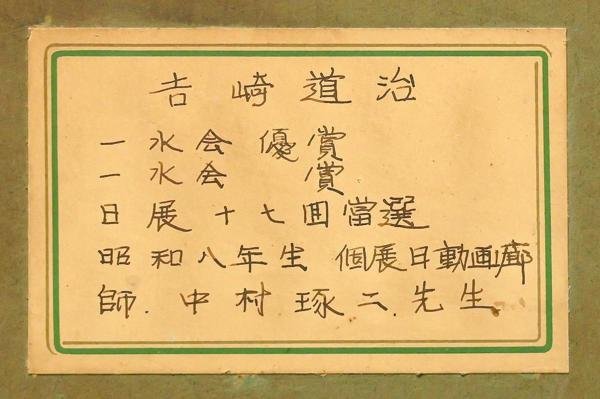 吉崎道治
一水会 優賞
一水会 賞
日展十七回當選
昭和八年生 個展日動画廊
師.中村琢二.先生